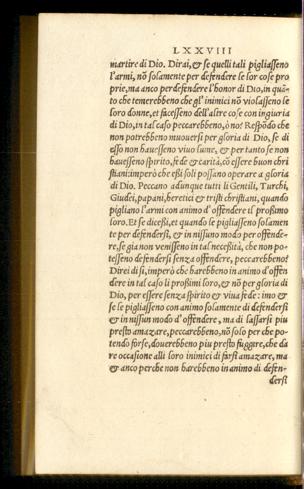 LXXVIII
martire di Dio. Dirai, & se quelli tali pigliasseno
l'armi, nõ solamente per defendere le lor cose pro
prie, ma anco per defendere l'honor di Dio, in quã-
to che temerebbeno che gl' inimici nõ violasseno le
lor donne, et facesseno dell'altre cose con ingiuria
di Dio, in tal caso peccarebbeno, ò no? Respõdo che
non potrebbeno muoversi per gloria di Dio, se di
esso non hauesseno viuo lume, & per tanto se non
hauesseno spirito, fede & carità, cõ essere buon chri
stiani: imperò che essi soli possano operare a gloria
di Dio. Peccano adunque tutti li Gentili, Turchi,
Giudei, papani, heretici & tristi christiani, quando
pigliano l'armi con animo d'offendere il prossimo
loro. Et se dicessi, et quando se pigliasseno solamen
te per defendersi, & in nissuno modo per offende-
re, se gia non venisseno in tal necessità, che non po-
tesseno defendersi senza offendere, peccarebbeno?
Direi di si, imperò che harebbeno in animo d'offẽn
dere in tal caso li prossimi loro, & nõ per gloria di
Dio, per essere senza spirito & viua fede: imo &
se se pigliasseno con animo solamente di defendersi
& in nissun modo d'offendere, ma di lassarsi piu
presto amazare, peccarebbeno, nõ solo per che po-
tendo forse, douerebbeno piu presto fuggire, che da
re occasione alli loro inimici di farsi amazare, ma
& anco perche non harebbeno in animo di defen-
dersi